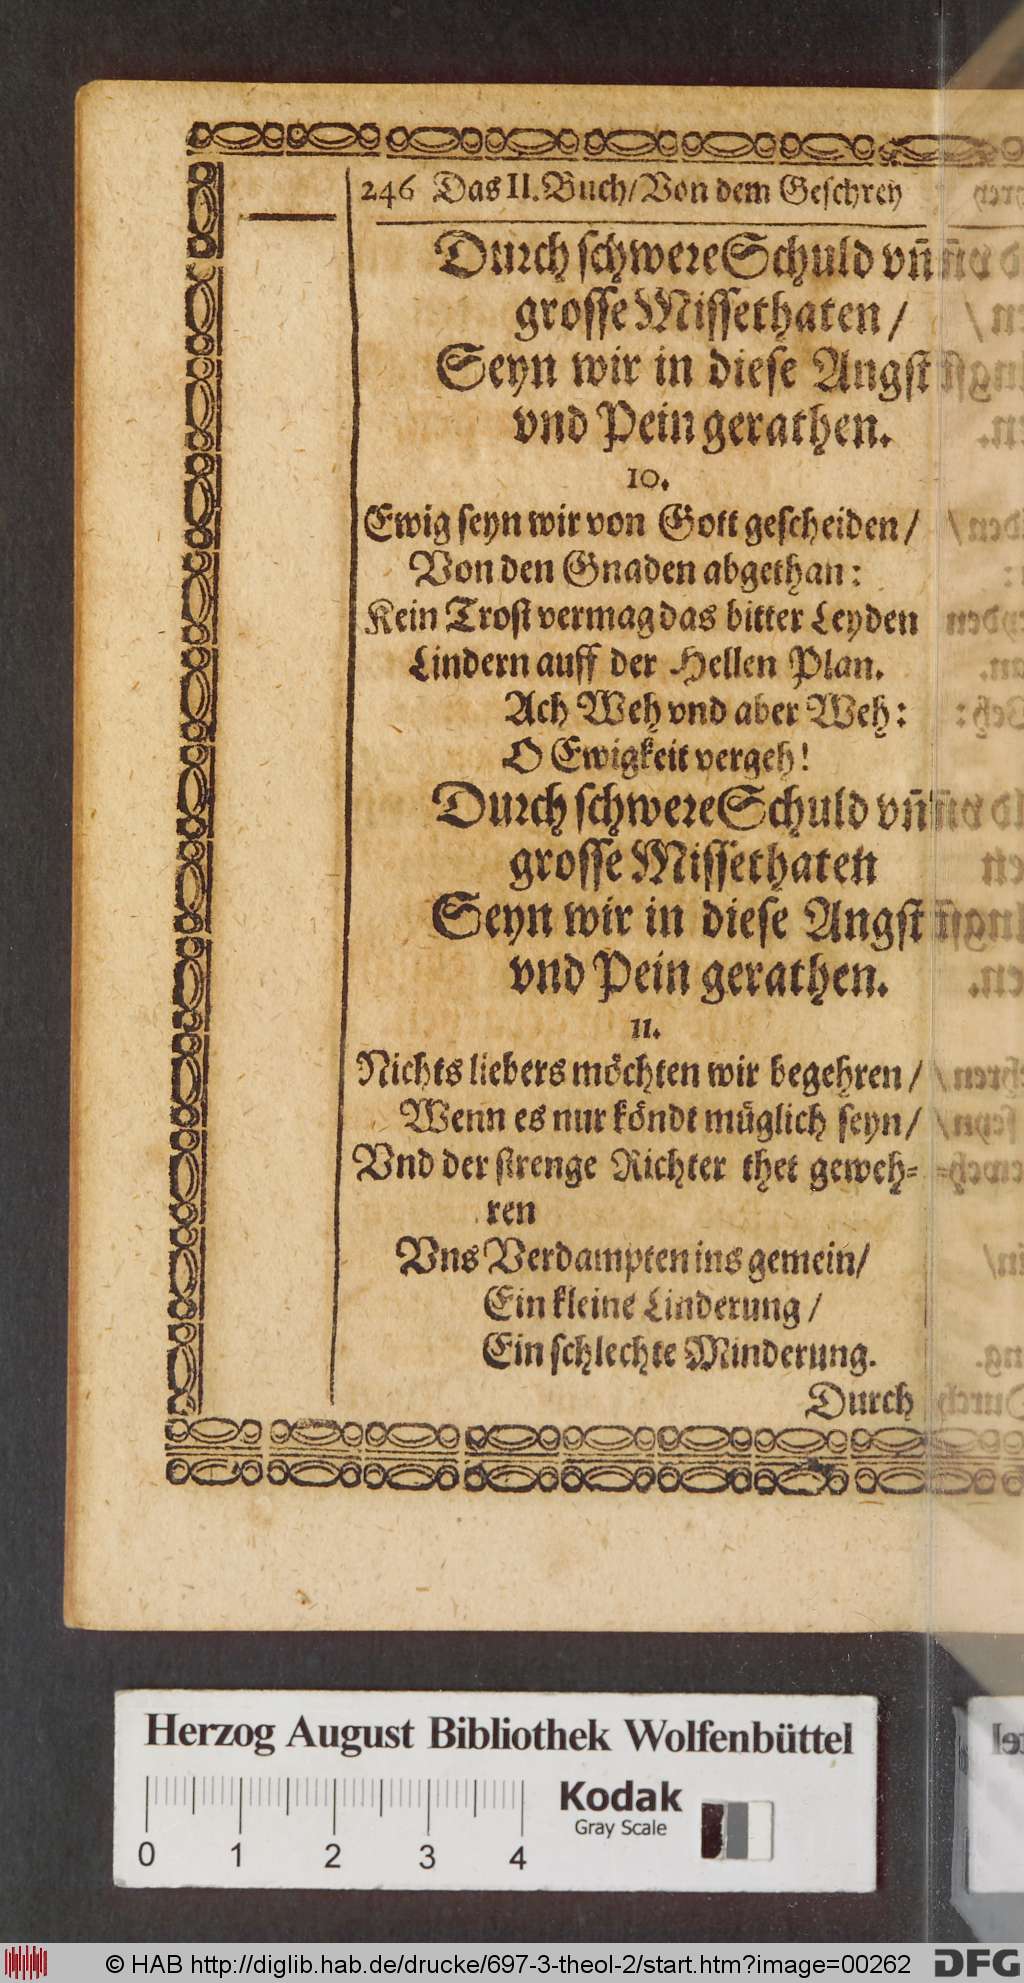 246 Das II. Buch/Von dem Geschrey
Durch schwere Schuld vn̄
grosse Missethaten /
Seyn wir in diese Angst
vnd Pein gerathen.
10.
Ewig seyn wir von Gott gescheiden /
Von den Gnaden abgethan:
Kein Trost vermag das bitter Leyden
Lindern auff der Hellen Plan.
Ach Weh vnd aber Weh:
O Ewigkeit vergeh!
Durch schwere Schuld vn̄
grosse Missethaten
Seyn wir in diese Angst
vnd Pein gerathen.
11.
Nichts liebers möchten wir begehren /
Wenn es nur köndt müglich seyn /
Vnd der strenge Richter thet geweh-
ren
Vns Verdampten ins gemein/
Ein kleine Linderung /
Ein schlechte Minderung.
Durch
Herzog August Bibliothek Wolfenbüttel
Kodak
Gray Scale
0 1 2 3 4
© HAB http://diglib.hab.de/drucke/697-3-theol-2/start.htm?image=00262
DFG